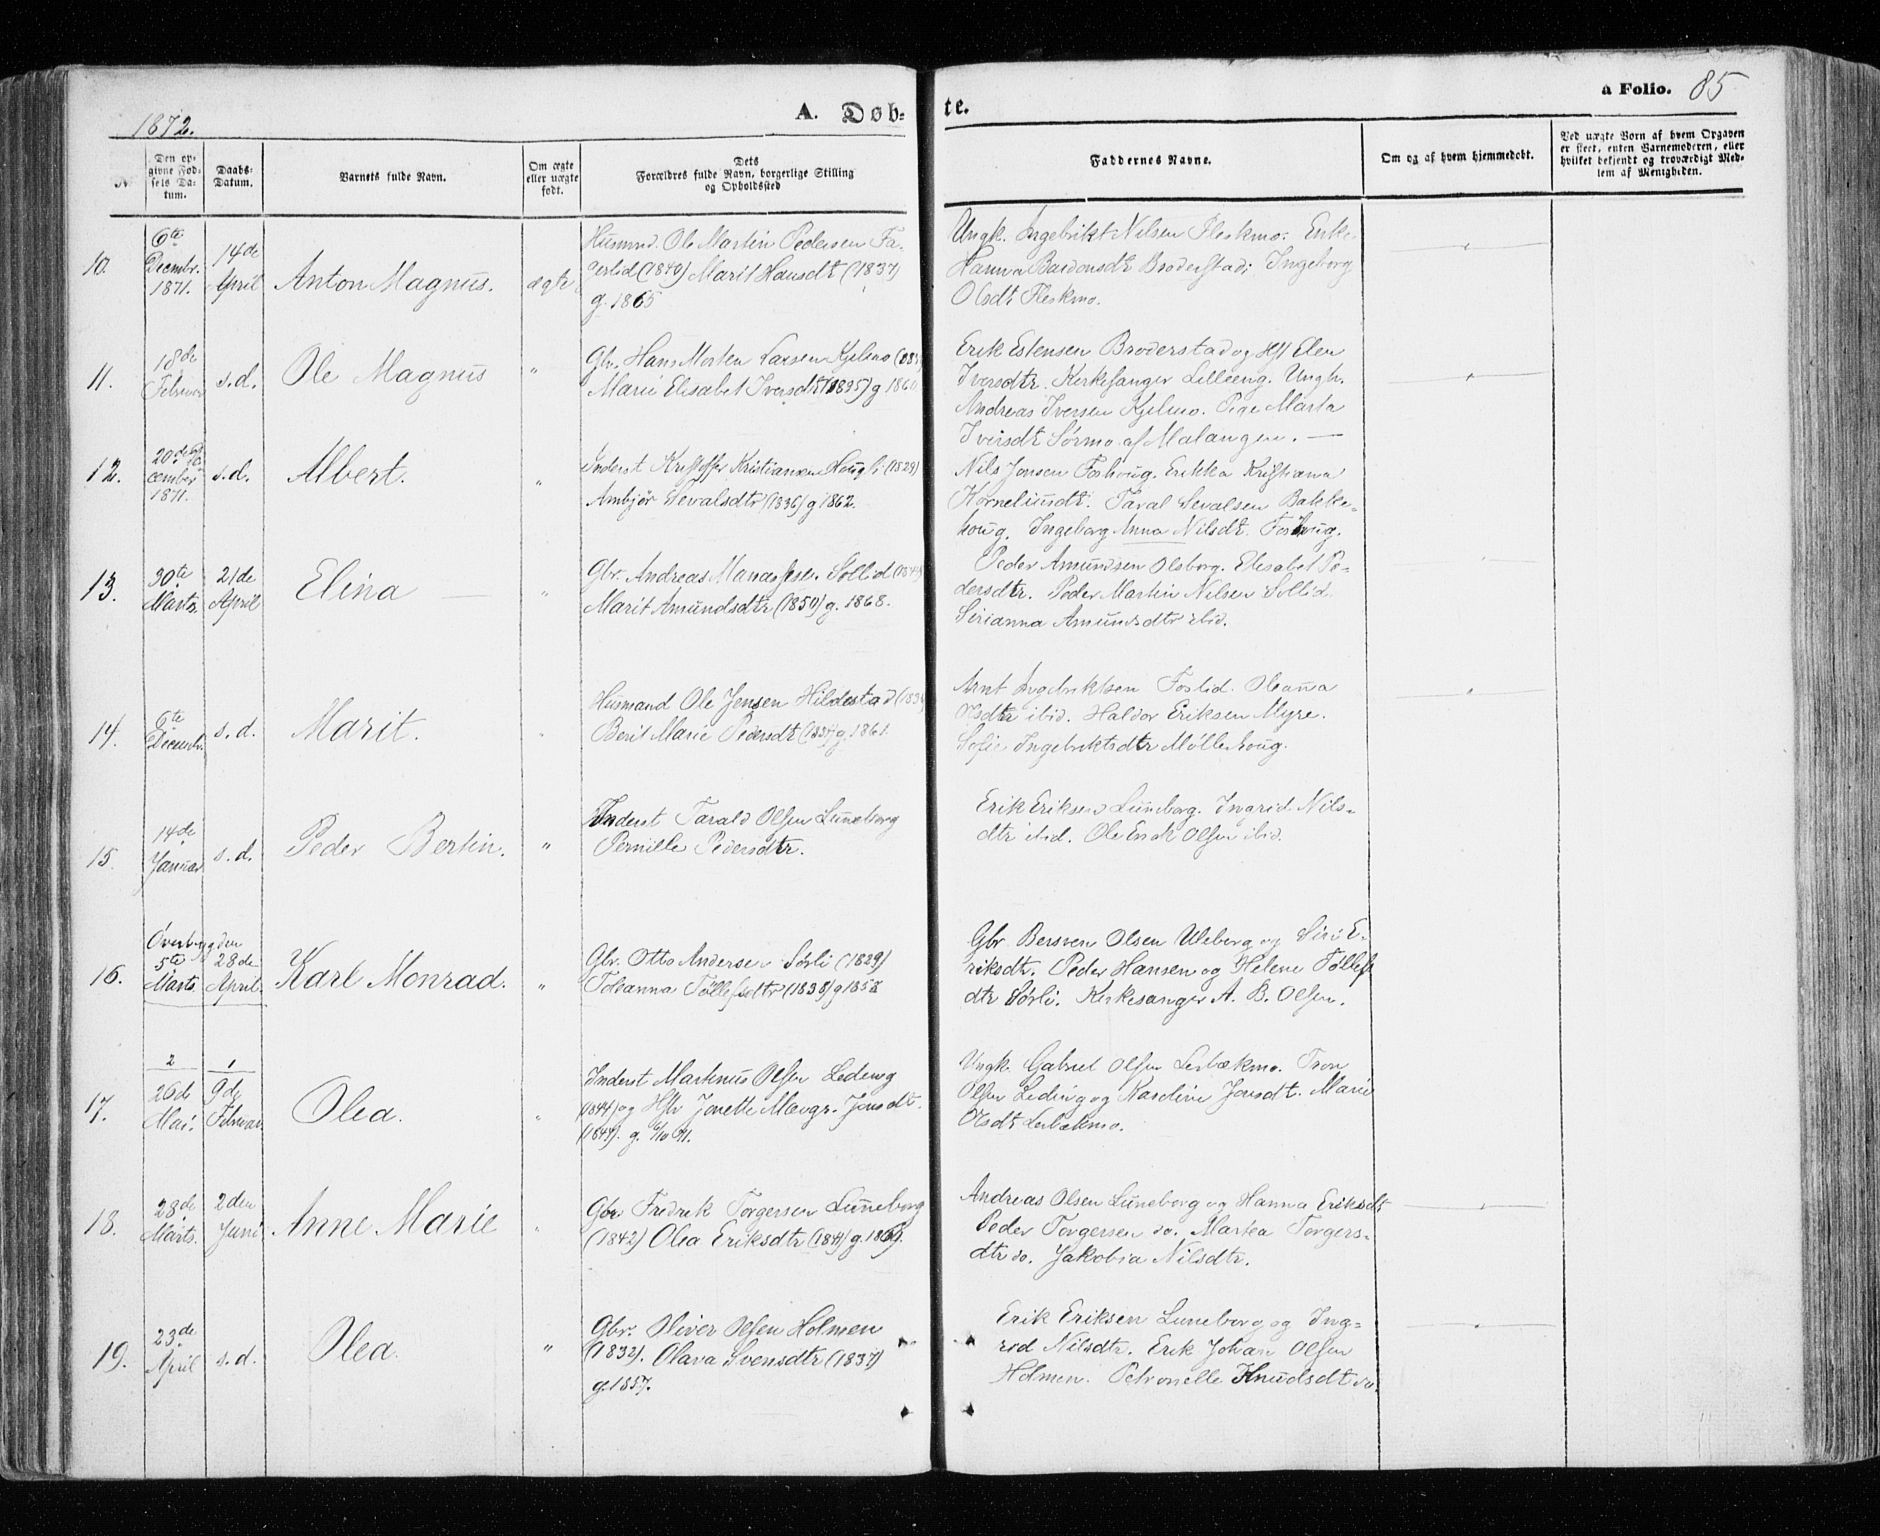 1872.
A. Døb-
te.
a Folio. 85
N
Den op-
givne Fød-
sels Da-
tum.
Daabs-
Datum.
Barnets fulde Navn.
Om ægte
eller uægte
født.
Dets
Forældres fulde Navn, borgerlige Stilling
og Opholdssted
Faddernes Navne.
Om og af hvem hjemmedøbt.
Ved uægte Børn af hvem Opgaven
er skeet, enten Barnemoderen, eller
hvilket bekjendt og troværdigt Med-
lem af Menigheden.
10.
6te
Decembr.
1871.
14de
April
Anton Magnus.
ægte
Husmnd. Ole Martin Pedersen Fa-
gerlid (1840) Marit Hansdt (1837)
g. 1865
Ungk. Ingebrikt Nilsen Fleskmo. Enke
Hanna Bardonsdt Broderstad; Ingeborg
Olsdt Fleskmo.
11.
18de
Februar
s.d.
Ole Magnus
"
Gbr. Hans Morten Larsen Kjelmo
Marie Elisabet Iversdt (1835) g 1860
Erik Estensen Broderstad og Hst Elen
Iversdtr. Kerkesanger Lilleeng. Ungk.
Andreas Iversen Kjelmo. Pige Marta
Iversdt Sørmo af Malangen. —
12.
20de De
cember
1871.
s.d.
Albert.
"
Inderst Kristoffer Kristiansen Hougli (1829)
Ambjør Sevalsdtr (1836) g 1862.
Nils Jensen Foshoug. Erikka Kristiana
Korneliusdt. Taral Sevalsen Bakke-
houg. Ingeborg Anna Nilsdt. Foshoug.
13.
30te
Marts.
21de
April
Elina —
"
Gbr. Andreas Manasses. Sollid
Marit Amundsdtr (1850) g. 1868.
Peder Amundsen Olsborg. Elisabet Pe-
dersdtr. Peder Martin Nilsen Sollid
Sirianna Amundsdtr ibid.
14.
6te
Decembr.
s.d.
Marit.
"
Husmand Ole Jensen Hildestad
Berit Marie Pedersdt (1837) g. 1861.
Arnt Ingebriktsen Foslid. Oleanna
Olsdtr ibid. Haldor Eriksen Myre.
Sofie Ingebriktsdtr Møllehoug.
15.
14de
Januar
s.d.
Peder Bertin.
"
Inderst Tarald Olsen Luneborg
Pernille Pedersdtr.
Erik Eriksen Luneborg. Ingrid Nils-
dtr ibid. Ole Enok Olsen ibid.
16.
Øverbygden
5te
Marts.
28de
April.
Karl Monrad.
"
Gbr. Otto Andersen Sørli (1829)
Toleanna Tøllefsdtr (1838) g 1858
Gbr. Bersven Olsen Uleberg og Siri E-
riksdtr. Peder Hansen og Helene Tøllefs
dtr Sørli. Kirkesanger A. B. Olsen.
17.
2
26de
Mai.
1
9de
Februar.
Olea.
"
Inderst Martinus Olsen Ledeng
(1844) og Hstr Jonette Mavgr. Jonsdt.
(1847). g. 6/10 71.
Ungk. Gabriel Olsen Lesbækmo. Tron
Olsen Leding og Karoline Jonsdt. Marie
Olsdt Lesbækmo.
18.
28de
Marts.
2den
Juni
Anne Marie
"
Gbr. Fredrik Torgersen Luneborg
(1842) Olea Eriksdtr (1841) g. 1869.
Andreas Olsen Luneborg og Hanna Eriksdt
Peder Torgersen do. Martea Torgers-
dtr do. Jakobia Nilsdtr.
19.
23de
April
s.d.
Olea.
"
Gbr. Oliver Olsen Holmen
(1832). Olava Svensdtr (1837)
g. 1857.
Erik Eriksen Luneborg og Ing-
rid Nilsdtr. Erik Johan Olsen
Holmen. Petronelle Knudsdt do.